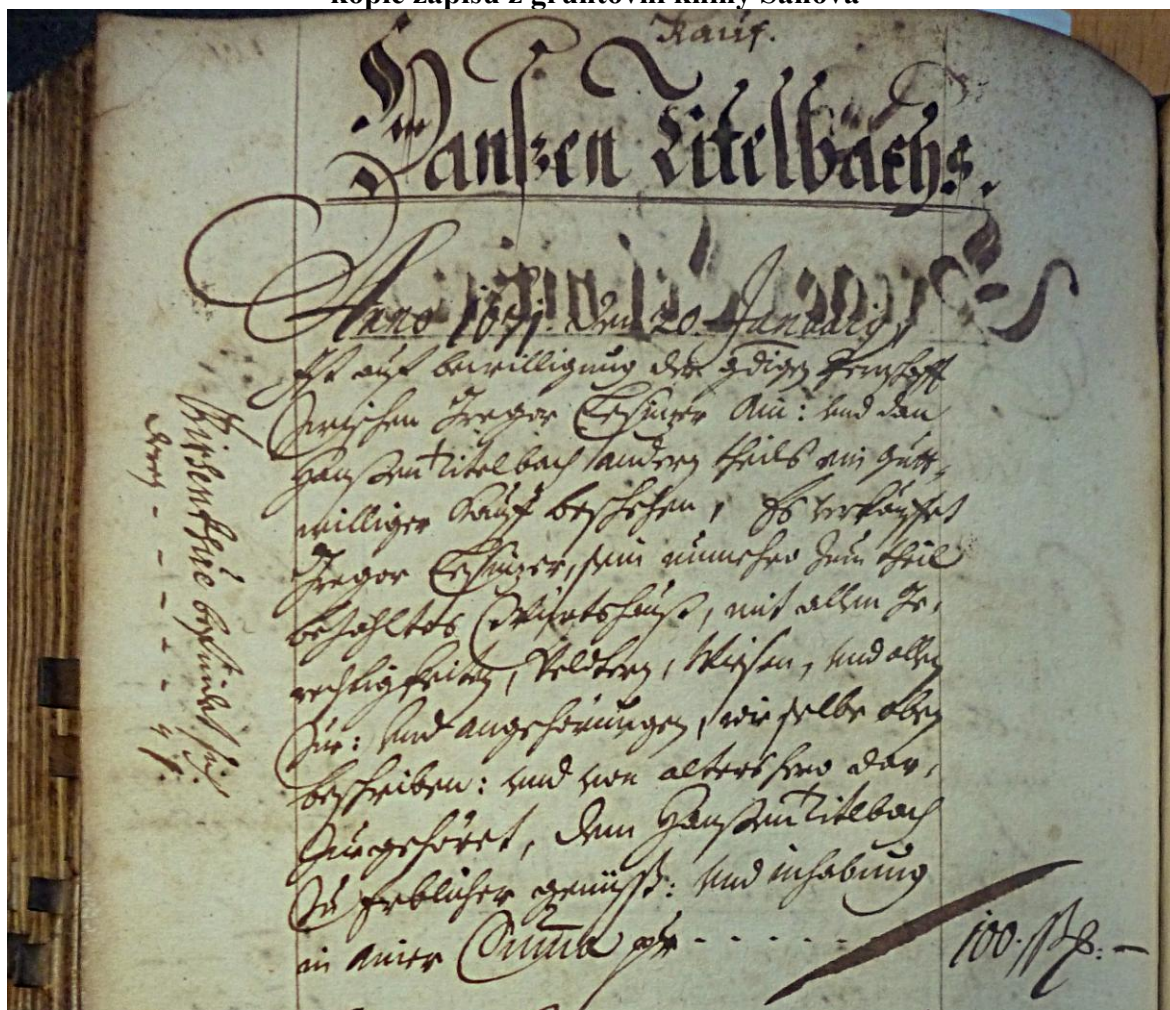 kopie zápisu z gruntovní knihy Šanova
Kauf.
Hanßen Titelbachs.
Anno 1671. den 20. January,
Ist auf bewilligung der gdigen Herrschafft
zwischen Gregor ain: und dan
Hanßen Titelbach andern theils ein gutt-
williger Kauff beschehen, Es verkauffet
Gregor sein nunmehro zum theil
bezahltes Würtshauß, mit allen Ge-
rechtigkeiten, Veldern, Wiesen, und allen
Zue: und angehörungen, wie selbe oben
beschriben: und von altershero dar-
zue gehöret, dem Hanßen Titelbach
zu Erblicher genüß: und inhabung
in ainer Summa per - - - - - - 100 ßg: -
befindet sich